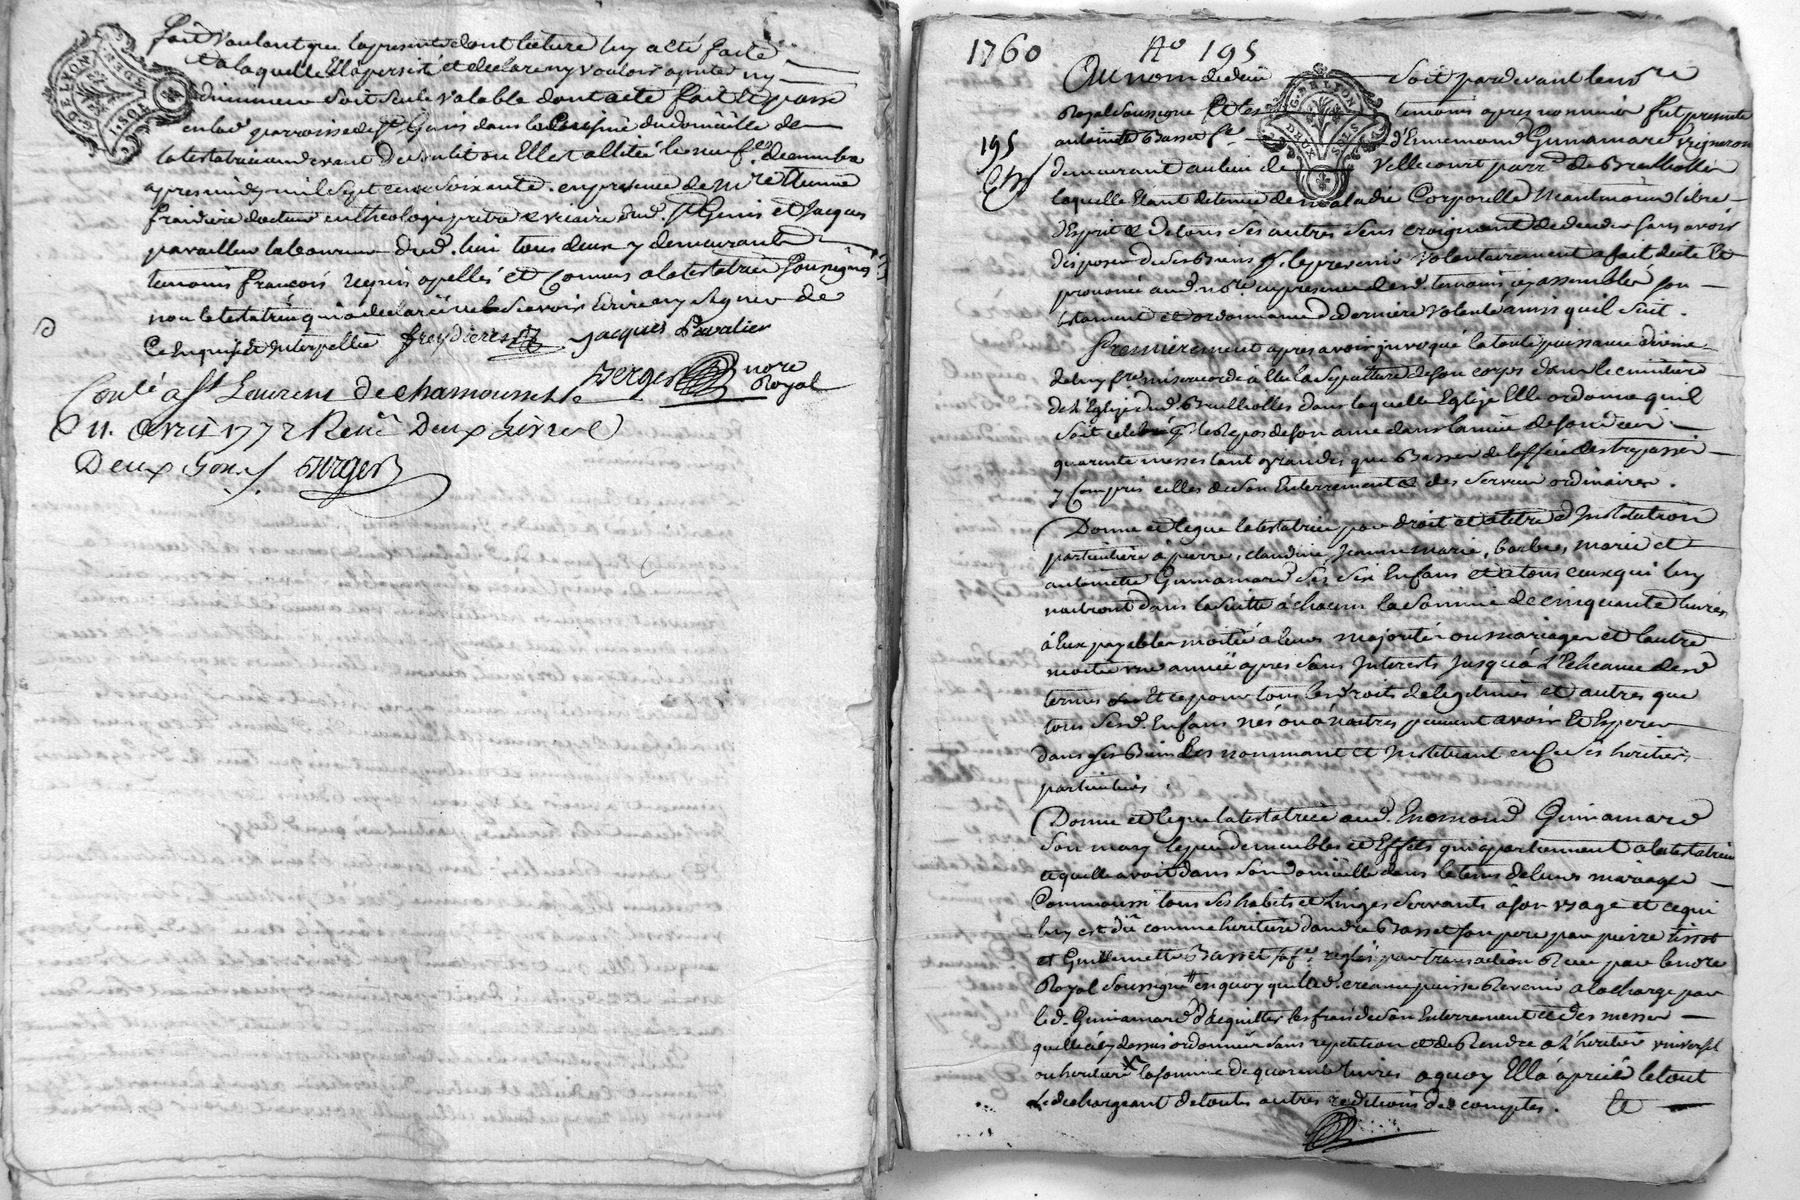 fait voulant que la presente dont lecture luy a eté faite
a laquelle Ella persisté et declare ny vouloir ajouter ny
diminuer soit seule valable dont acte fait et passé
en lad. parroisse de St Genis dans la Cuisine du domicille de
la testatrice au devant de son lit ou Elle est allitée le neuf xbre decembre
apres midy mil sept cens soixante en presence de Mre Etienne
docteur en theologie pretre & vicaire dud. St Genis et Jacques
pavallier laboureur dud. lieu tous deux y demeurants
temoins François requis apellés et Connus a la testatrice soussignés
non la testatrice qui a declaré ne le savoir Ecrire ny signer de
ce enquise et interpellée freydieres Jacques Pavalier
Berger nore
Royal
Conlé a St Laurent de chamousset le
11. avril 1772 Reçu Deux Livres
Deux sous Burger
G. DE LYON
1. SOL
1760 No 195
195
Au nom de dieu soit pardevant le nore
Royal soussigné et les temoins apres nommés fut presente
antoinette Basset fe d'Ennemond Guinamard vigneron
demeurant au lieu de Vellecourt parr. de Brullioles
laquelle Etant detenue de maladie Corporelle neantmoins libre
d'Esprit & de tous ses autres sens craignant de deceder sans avoir
disposé de ses Biens p. le present volontairement a fait dicté et
prononcé aud. nore en presence desd. temoins icy assemblés son
testament et ordonnance de derniere volonté ainsi qu'il suit.
Premierement apres avoir invoqué la toute puissance divine
de luy fre misericorde a Elu la sepulture de son corps dans le cimetiere
de l'Eglise dud. Brullioles dans laquelle Eglise Elle ordonne qu'il
soit celebré p. le Repos de son ame dans l'année de son deces
quarente messes tant grandes que Basses de l'office des trepassés
y Compris celles de son Enterrement & des services ordinaires.
Donne et legue la testatrice par droit et titre d'Institution
particuliere à pierre, claudine, Jeanne marie, barbe, marie et
antoinette Guinamard ses six Enfans et a tous ceux qui luy
naitront dans la suitte à chacun la somme de cinquante livres
à Eux payables moitié a leurs majorité ou mariages et l'autre
moitié une année apres sans Interests jusqu'à l'Echeance desd.
termes et ce pour tous les droits de legitimes et autres que
tous sesd. Enfans nés ou à naitres peuvent avoir et Esperer
dans ses Biens les nommant et Instituant en ce ses heritiers
particuliers.
Donne et legue la testatrice aud. Enemond Guinamard
son mary le peu de meubles et Effets qui apartiennent a la testatrice
et quelle avoit dans son domicille dans le tems de leurs mariage
Comme aussi tous ses habits et Linges servants à son usage et ce qui
luy est dû comme heritiere d'andré Basset son pere par pierre Tissot
et Guillemette Basset sa fe reglés par transaction Recu par le nore
Royal soussigné en quoy quelle d. creance puisse Revenir a la charge par
led. Guinamard d'acquitter les frais de son Enterrement & des messes
quelle a cy dessus ordonnées sans repetition et de Rendre a l'heritier universel
ou heritiere la somme de quarente livres a quoy Ella aprecié le tout
le dechargeant de toutes autres redditions de comptes. Le
G. DE LYON
DEUX SOLS